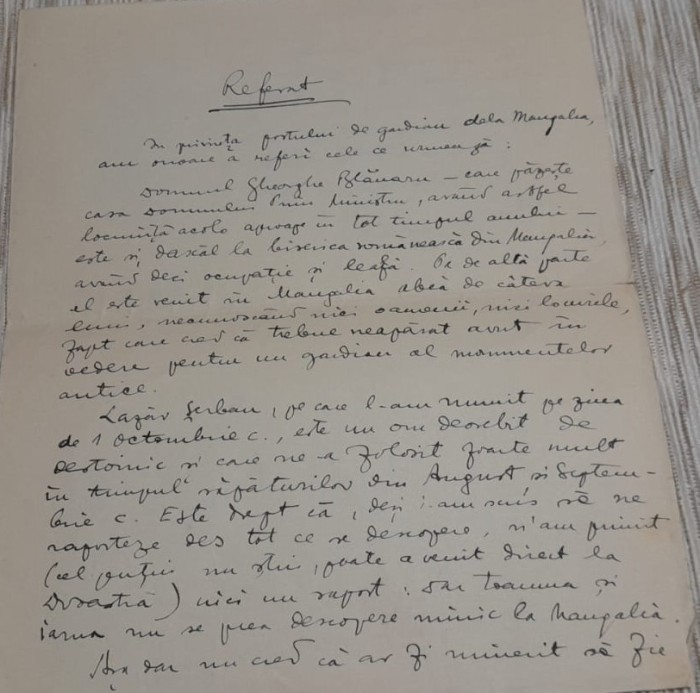 Referat
In privința postului de gardian dela Mangalia,
am onoare a referi cele ce urmează:
Domnul Gheorghe Blănaru – care păzește
casa Domnului Prim Ministru, având astfel
locuință acolo aproape în tot timpul anului –
este și dascăl la biserica românească din Mangalia,
având deci ocupație și leafă. Pe de altă parte
el este venit în Mangalia abia de câteva
luni, necunoscând nici oamenii, nici locurile,
fapt care cred că trebue neapărat avut în
vedere pentru un gardian al monumentelor
antice.
Lazăr Șerban, pe care l-am numit pe ziua
de 1 octombrie c., este un om deosebit de
destoinic și care ne-a folosit foarte mult
în timpul săpăturilor din August și Septem-
brie c. Este drept că, deși i-am scris să ne
raporteze des tot ce se descopere, n'am primit
(cel puțin nu știu, poate a venit direct la
) nici un raport: dar toamna și
iarna nu se prea descopere nimic la Mangalia.
Așa dar nu cred că ar fi nimerit să fie